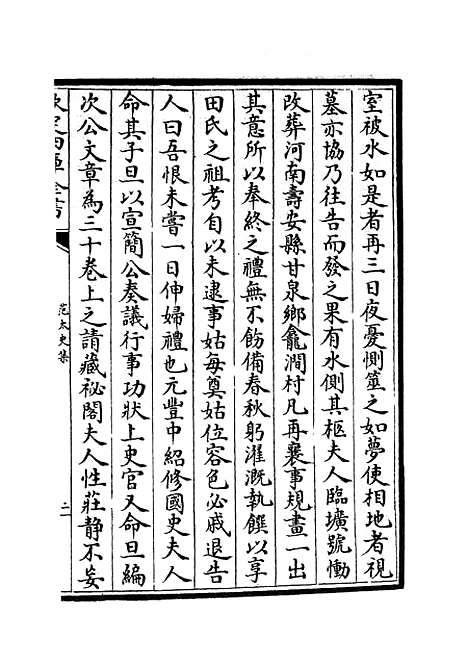 室被水如是者再三日夜憂惻筮之如夢使相地者視
墓亦協乃往告而發之果有水側其柩夫人臨壙號慟
改葬河南壽安縣甘泉鄉龕澗村凡再襄事規畫一出
其意所以奉終之禮無不飭備春秋躬濯溉執饌以享
田氏之祖考自以未逮事姑每奠姑位容色必戚退告
人曰吾恨未嘗一日伸婦禮也元豐中紹修國史夫人
命其子旦以宣簡公奏議行事功狀上史官又命旦編
次公文章為三十卷上之請藏祕閣夫人性莊静不妄
欽定四庫全書
范太史集
二